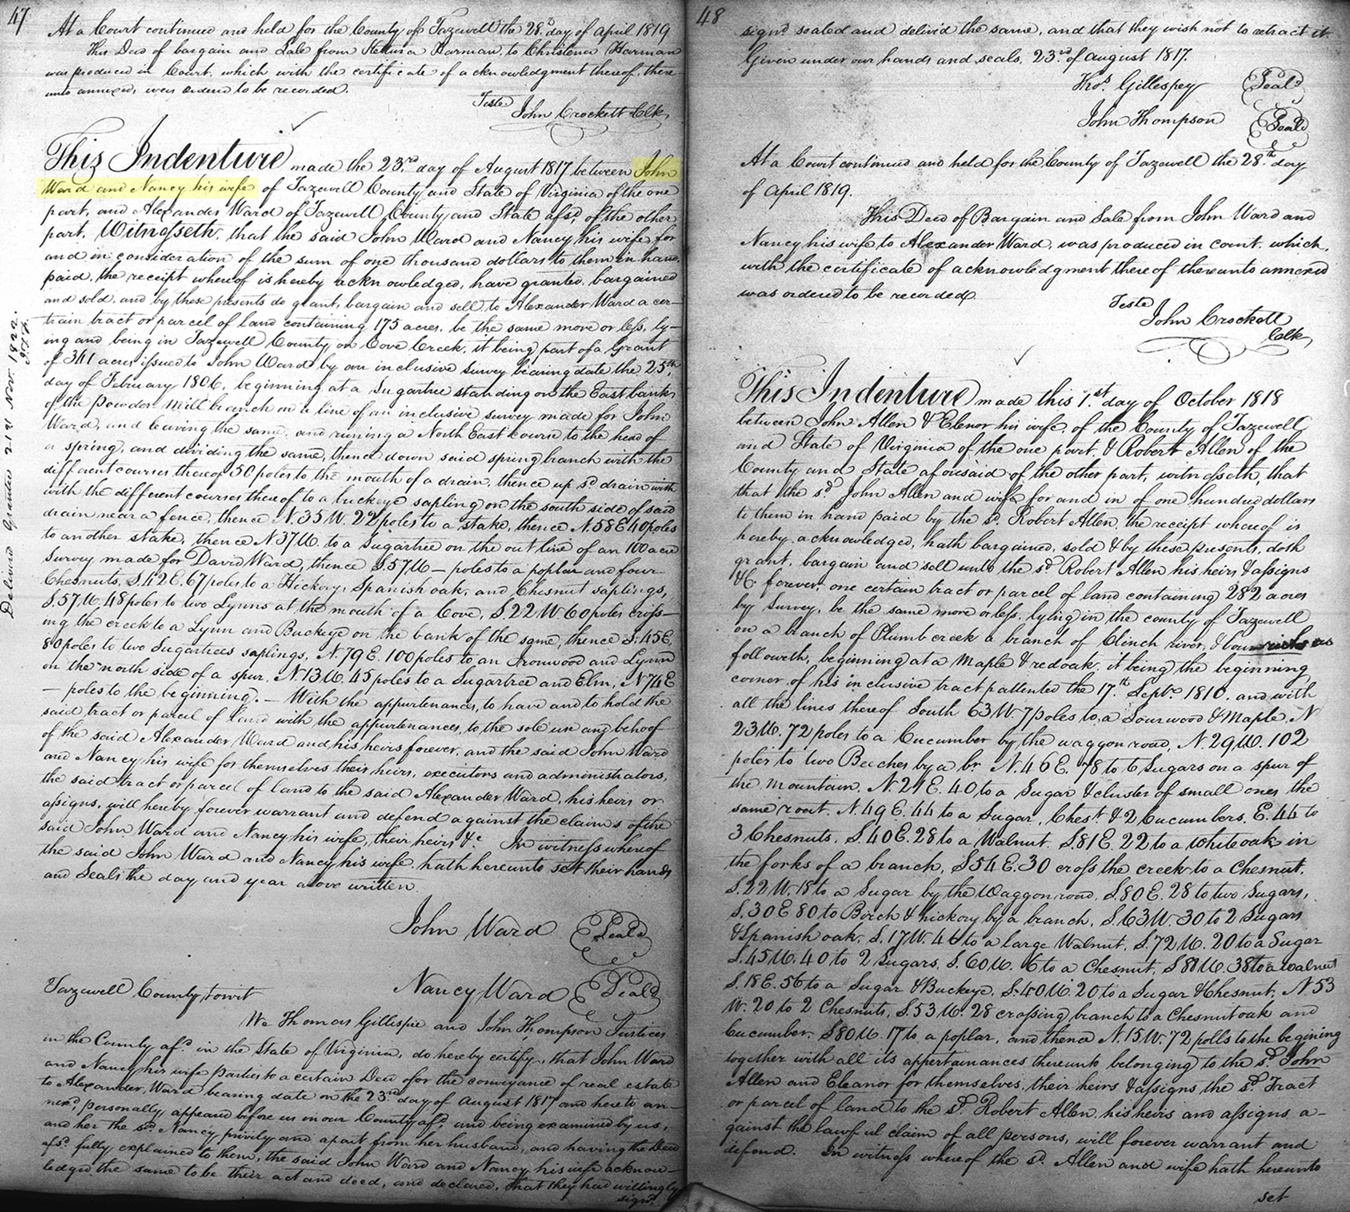 47
At a Court continued and held for the County of Tazewell the 28th day of April 1819
This Deed of bargain and Sale from Harman, to Christena Harman
was produced in Court, which with the certificate of acknowledgment thereof, there-
unto annexed, was ordered to be recorded.
Teste
John Crockett Clk
This Indenture made the 23rd day of August 1817 between John
Ward and Nancy his wife of Tazewell County and State of Virginia of the one
part, and Alexander Ward of Tazewell County and State afsd of the other
part, Witnesseth, that the said John Ward and Nancy his wife for
and in consideration of the sum of one thousand dollars to them in hand
paid, the receipt whereof is hereby acknowledged, have granted, bargained
and sold, and by these presents do grant, bargain and sell to Alexander Ward a cer-
tain tract or parcel of land containing 175 acres, be the same more or less, ly-
ing and being in Tazewell County on Cove Creek, it being part of a Grant
of 361 acres issued to John Ward by an inclusive survey bearing date the 25th
day of February 1806, beginning at a Sugartree standing on the East bank
of the Powder Mill branch on a line of an inclusive survey made for John
Ward, and leaving the same, and runing a North East course to the head of
a spring, and dividing the same, thence down said spring branch with the
different courses thereof 50 poles to the mouth of a drain, thence up sd drain with
with the different courses thereof to a buckeye sapling on the south side of said
drain near a fence, thence N.35W. 22 poles to a stake, thence N.58E 40 poles
to another stake, thence N37W. to a Sugartree on the out line of an 100 acre
Survey made for David Ward, thence S57W — poles to a poplar and four
Chesnuts, S.42E. 67 poles to a Hickory, Spanish oak, and Chesnut saplings,
S.57W. 48 poles to two Lynns at the mouth of a Cove, S.22W 60 poles cross-
ing the creek to a Lynn and Buckeye on the bank of the same, thence S.45E
80 poles to two Sugartrees saplings, N.79E. 100 poles to an Ironwood and Lynn
on the north side of a spur, N13W. 45 poles to a Sugartree and Elm, N74E
— poles to the beginning. — With the appurtenances, to have and to hold the
said tract or parcel of land with the appurtenances, to the sole use and behoof
of the said Alexander Ward and his heirs forever, and the said John Ward
and Nancy his wife for themselves their heirs, executors and administrators,
the said tract or parcel of land to the said Alexander Ward, his heirs or
assigns, will hereby forever warrant and defend against the claims of the
said John Ward and Nancy his wife, their heirs &c. In witness whereof
the said John Ward and Nancy his wife, hath hereunto sett their hands
and Seals the day and year above written.
John Ward Seal
Nancy Ward Seal
Tazewell County towit
We Thomas Gillespie and John Thompson Justices
in the County afsd in the State of Virginia, do hereby certify, that John Ward
and Nancy his wife parties to a certain Deed for the conveyance of real estate
to Alexander Ward bearing date on the 23rd day of August 1817 and hereto an-
nexd, personally appeared before us in our County afsd and being examined by us,
and her the sd Nancy privily and apart from her husband, and having the Deed
afsd fully explained to them, the said John Ward and Nancy his wife acknow-
ledged the same to be their act and deed, and declared, that they had willingly
signd
Delivered Grantee 21st Nov. 1822.
48
signd sealed and delivd the same, and that they wish not to retract it
Given under our hands and seals, 23rd of August 1817.
Thos Gillespey Seal
John Thompson Seal
At a Court continued and held for the County of Tazewell the 28th day
of April 1819.
This Deed of Bargain and Sale from John Ward and
Nancy his wife to Alexander Ward, was produced in court, which,
with the certificate of acknowledgment thereof thereunto annexed
was ordered to be recorded.
Teste
John Crockett
Clk
This Indenture made this 1st day of October 1818
between John Allen & Elenor his wife, of the County of Tazewell
and State of Virginia of the one part, & Robert Allen of the
County and State aforesaid of the other part, witnesseth, that
that the sd John Allen and wife for and in of one hundred dollars
to them in hand paid by the sd Robert Allen, the receipt whereof is
hereby acknowledged, hath bargained, sold & by these presents, doth
grant, bargain and sell unto the sd Robert Allen his heirs & assigns
&c. forever, one certain tract or parcel of land containing 282 acres
by Survey, be the same more or less, lying in the county of Tazewell
on a branch of Plumb creek a branch of Clinch river, & as
followeth, beginning at a Maple & redoak, it being the beginning
corner of his inclusive tract pattented the 17th Septr 1810, and with
all the lines thereof South 63W. 7 poles to a Sourwood & Maple, N
23W. 72 poles to a Cucumber by the waggon road, N.29W. 102
poles to two Beeches by a br N.46E. 78 to 6 Sugars on a spur of
the mountain, N 21 E. 40 to a Sugar & cluster of small ones the
same root, N.49E. 44 to a Sugar, Chest & 2 Cucumbers, E. 44 to
3 Chesnuts, S.40E. 28 to a Walnut, S.81E. 22 to a white oak in
the forks of a branch, S54E. 30 cross the creek to a Chesnut,
S.22W. 18 to a Sugar by the Waggon road, S.80E. 28 to two Sugars,
S.30E 80 to Birch & hickory by a branch, S.63W. 30 to 2 Sugars
& Spanish oak, S.17W. 46 to a large Walnut, S.72W. 20 to a Sugar
S.45W. 40 to 2 Sugars, S.60W. 6 to a Chesnut, S81W. 38 to a walnut
S.18E. 56 to a Sugar & Buckeye, S.40W. 20 to a Sugar & Chesnut, N53
W. 20 to 2 Chesnuts, S.53W. 28 crossing branch to a Chesnut oak and
Cucumber, S80W. 17 to a poplar, and thence N.15W. 72 polls to the begining
together with all its appertainances thereunto belonging to the sd John
Allen and Eleanor for themselves, their heirs & assigns the sd Tract
or parcel of land to the sd Robert Allen, his heirs and assigns a-
gainst the lawful claim of all persons, will forever warrant and
defend. In witness whereof the sd Allen and wife hath hereunto
set